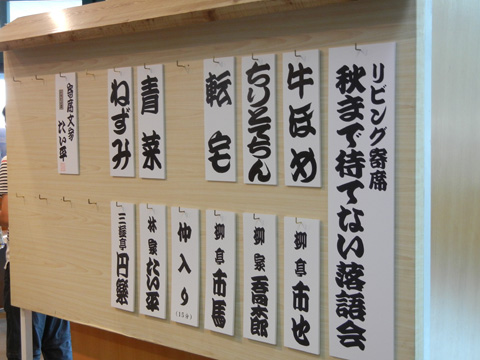 リビング寄席
秋まで待てない落語会
牛ほめ
ちりとてちん
転宅
青菜
ねずみ
寄席文字
たい平
柳亭市也
柳家喬太郎
柳亭市馬
仲入り
(15分)
林家たい平
三遊亭円樂